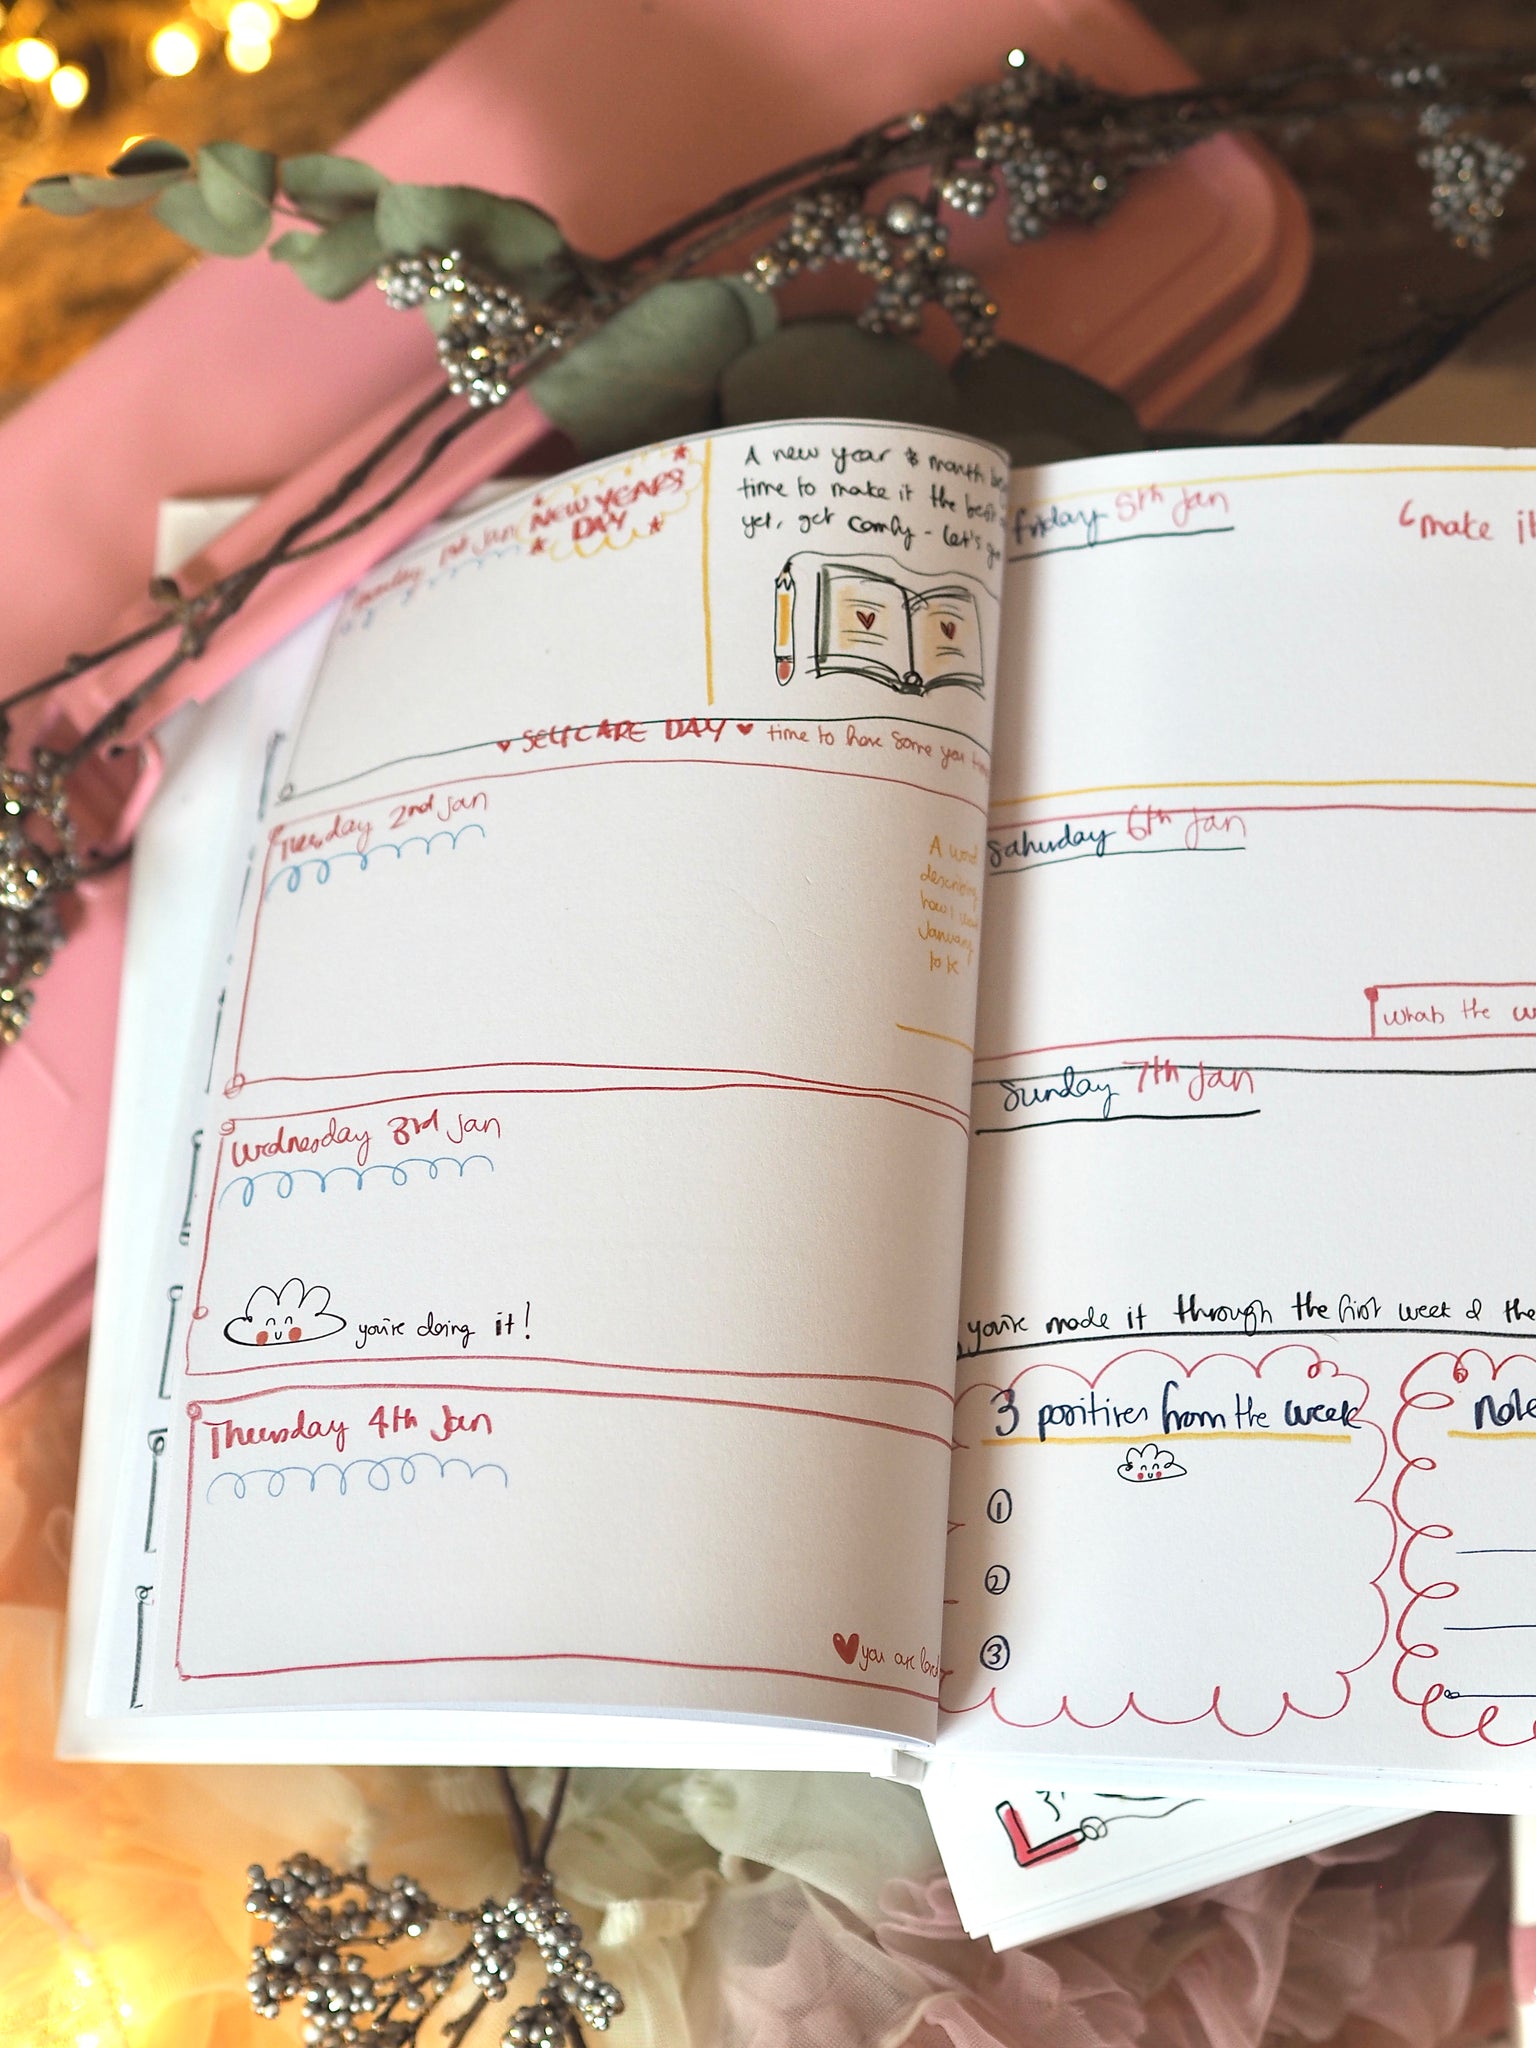 Monday 1st Jan
NEW YEARS
DAY
A new year & month
time to make it the best
yet, get comfy - let's
♥ SELFCARE DAY ♥ time to have some you
Tuesday 2nd Jan
A word
describing
how I want
January
to be
Wednesday 3rd Jan
you're doing it!
Thursday 4th Jan
you are loved
friday 5th Jan
make it
Saturday 6th Jan
whats the
Sunday 7th Jan
you're made it through the first week & the
3 positives from the week
1
2
3
note